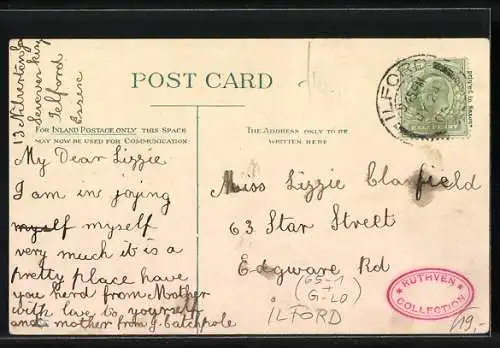 Ilford
Essex
POST CARD
FOR INLAND POSTAGE ONLY THIS SPACE
MAY NOW BE USED FOR COMMUNICATION
THE ADDRESS ONLY TO BE
WRITTEN HERE
My Dear Lizzie
I am in joying
myself myself
very much it is a
pretty place have
you herd from Mother
with love to yourself
and mother from J. Catchpole
Miss Lizzie
63 Star Street
Edgware Rd
ILFORD
RUTHVEN
COLLECTION
ILFORD
19,-